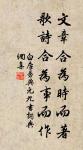 文章合為時而著
歌詩合為事而作
白居易與元九書詞典
網集